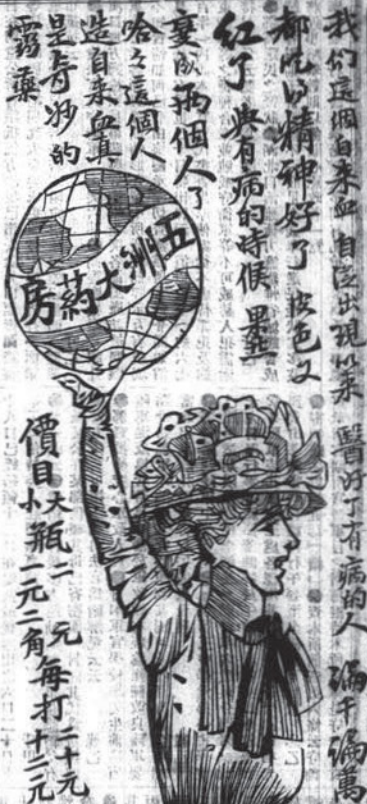 我们這個自来血 自從出現以来 醫好了有病的人 論千論萬
都吃得精神好了 皮色又
红了 與有病的時候 果然
變成兩個人了
哈々這個人
造自来血真
是奇妙的
靈藥
五洲大葯房
價目 大瓶二元 每打二十元
小瓶一元二角 每打十二元